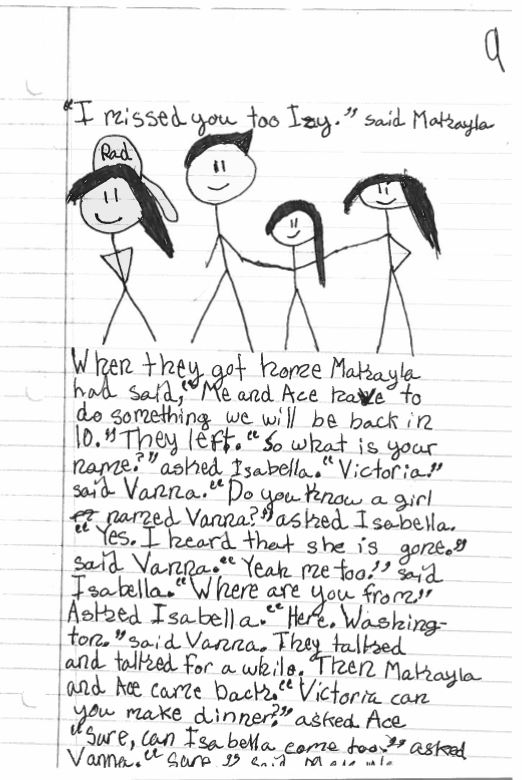 9
"I missed you too Izy." said Makayla
Rad
When they got home Makayla
had said, "Me and Ace have to
do something we will be back in
10." They left. "So what is your
name?" asked Isabella. "Victoria."
said Vanna. "Do you know a girl
named Vanna?" asked Isabella.
"Yes. I heard that she is gone."
said Vanna. "Yeah me too." said
Isabella. "Where are you from."
Asked Isabella. "Here. Washing-
ton." said Vanna. They talked
and talked for a while. Then Makayla
and Ace came back. "Victoria can
you make dinner?" asked Ace
"Sure, can Isabella come too?" asked
Vanna. "Sure" said